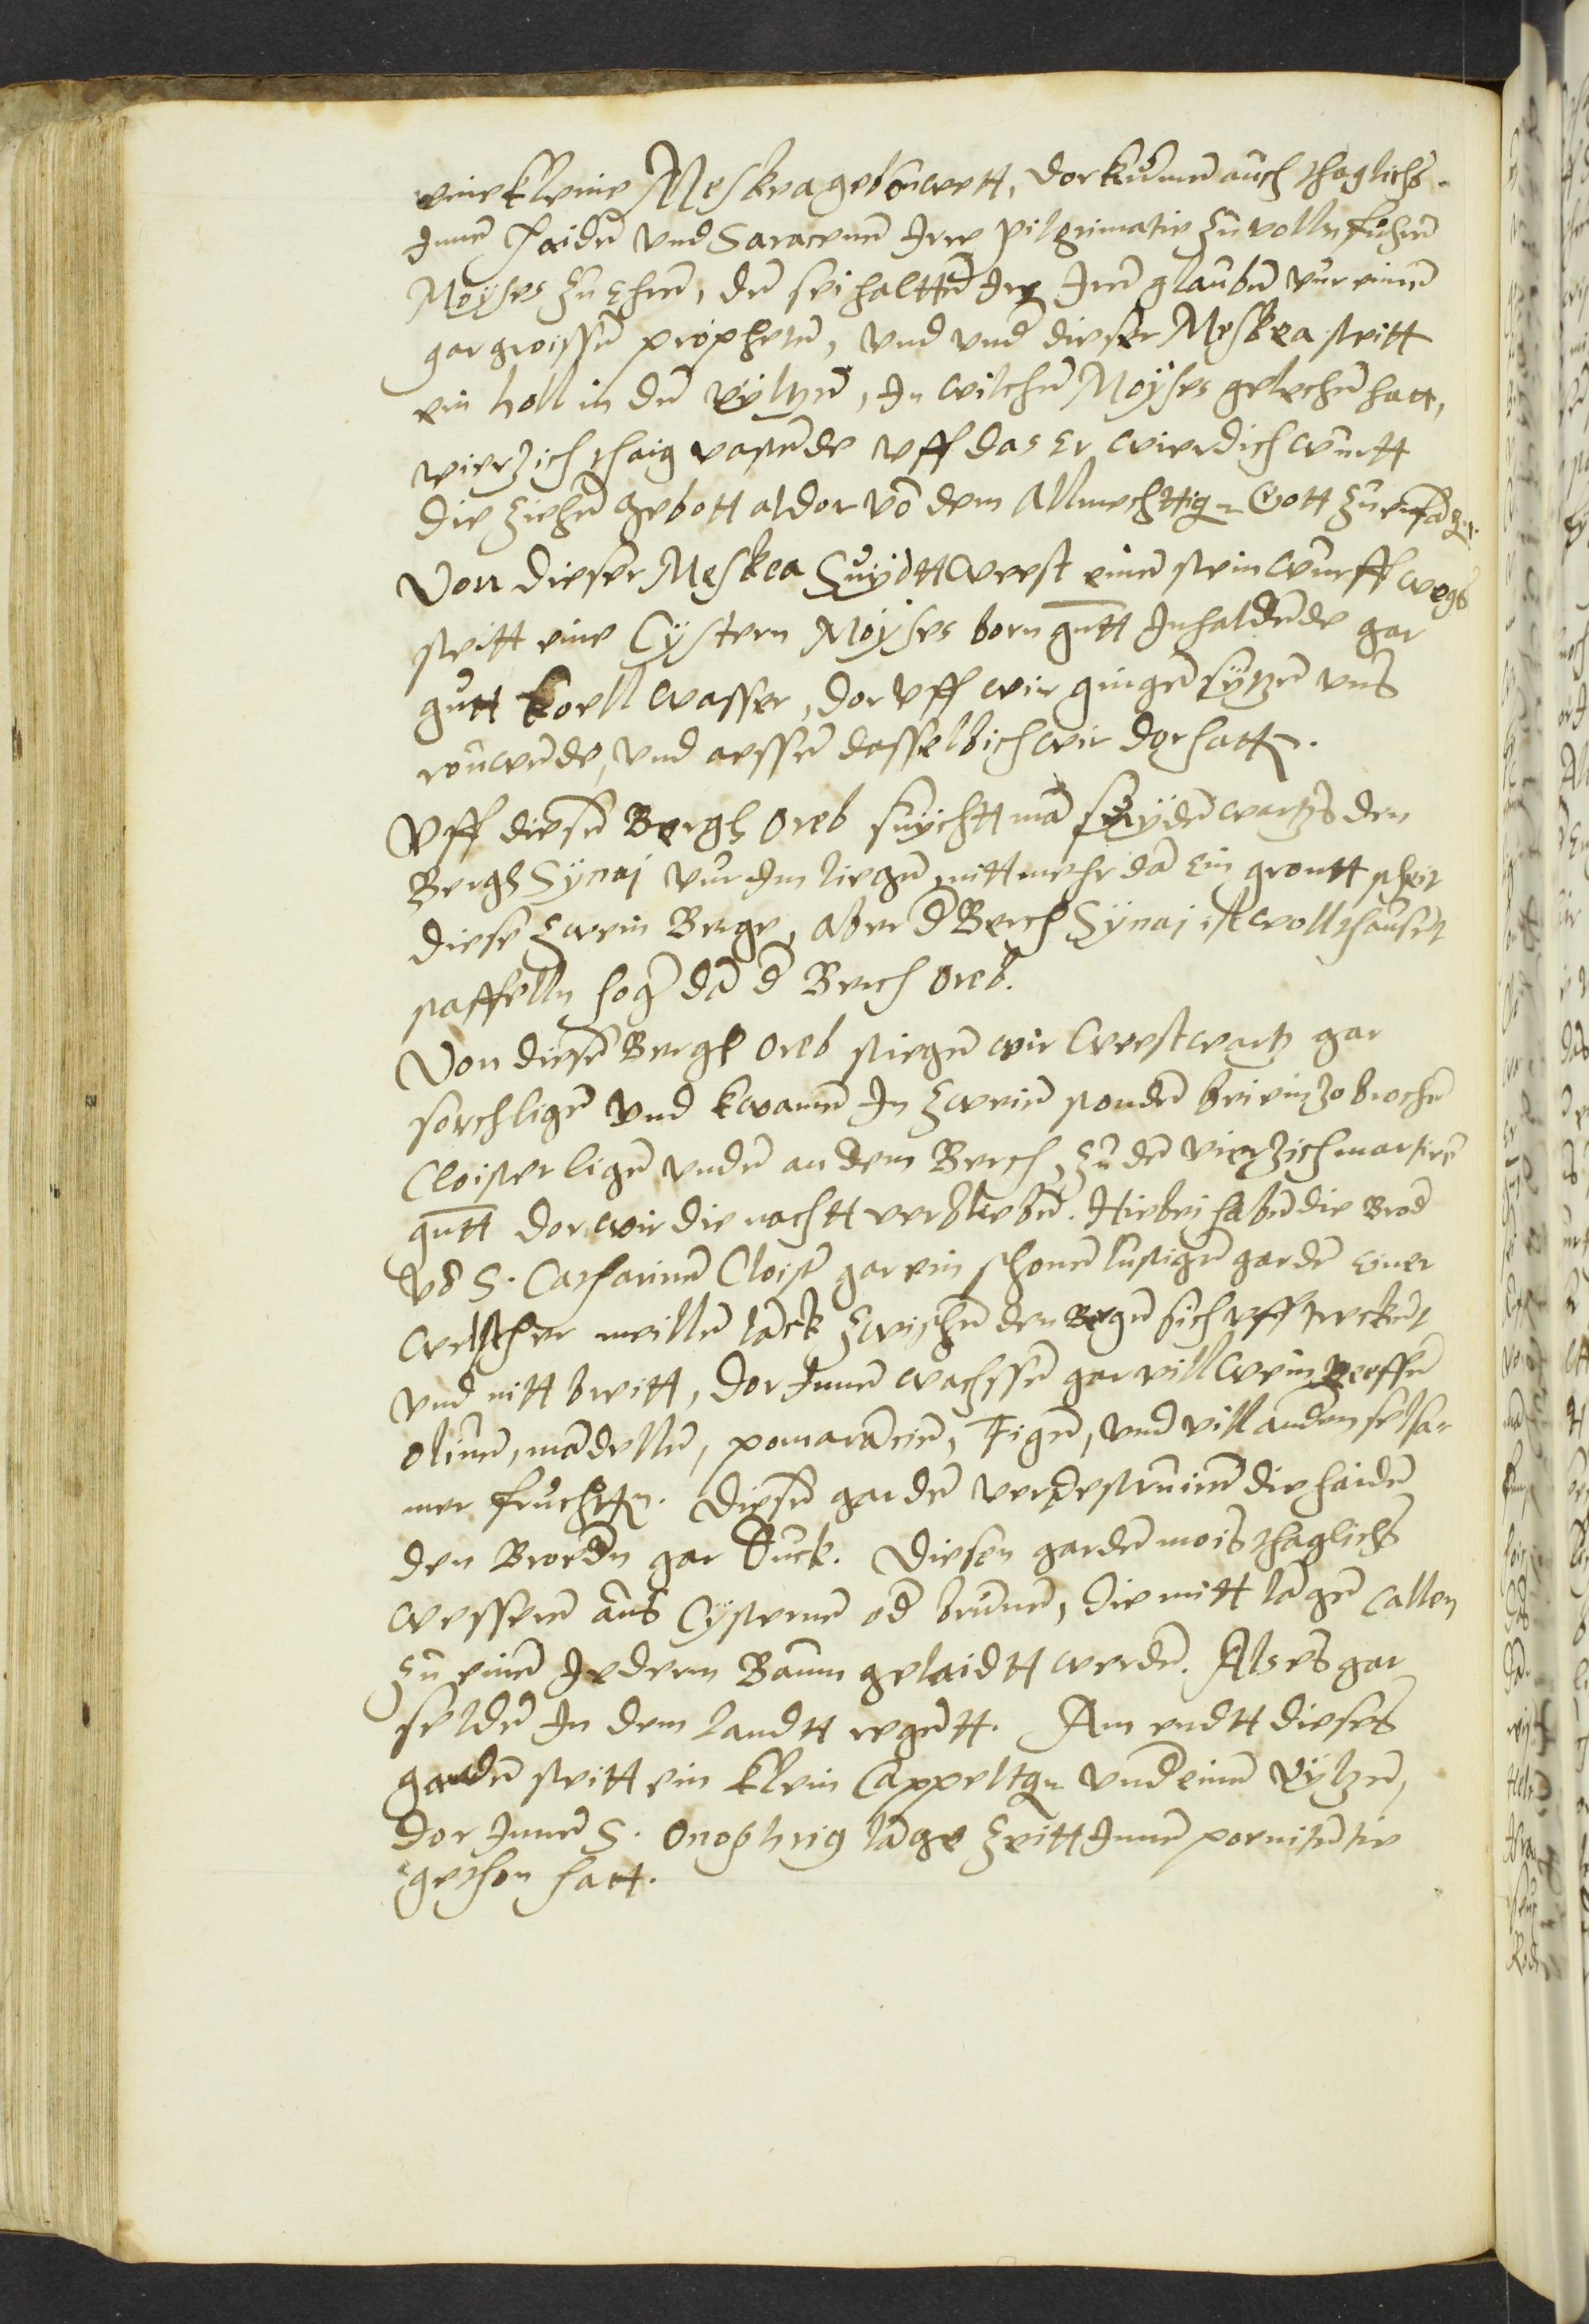 eine kleine Meskea gebouwett, dor kumen auch thaglichs
Inne Haide und Saracenen Irre pilgrimatie zu vollnfuhren
Moyses zu Ehren, den sei haltten In Iren glauben vur einen
gar groissen propheten, vnd vnd dieser Meskea steitt
ein holl in den vyltzen, In wilchen Moyses gelechen hatt,
vierzich thaig vastende vff das er wierdich wurtt
die ziehen gebott aldor vo dem Allmechttigen Gott zu
Von dieser Meskea Suydtweest einen stein wurff wegs
steitt eine Cystern Moyses born gnt Inhaldende gar
gutt koell wasser, dor vff wir gingen sytzen vns
rouwende, vnd aessen dasselbich wir dor hatten.
Vff diesen Bergh Oreb suychtt ma suyden wartzs den
Bergh Synai vur Im liegen, nitt mehr da ein groutt scheit
diese zwein Berge, aber d Berch Synai ist woll thausent
staffelln hog da d Berch Oreb.
Von diesen Bergh Oreb stiegen wir Weestwartz gar
sorchligen vnd kwamen In zweien stonden bei ein zobrochen
Cloister ligen vnden an dem Berch, zu den vierzich martiren
gntt dor wir die nachtt verblieben. Hiebei haben die Brod
vo S. Catharinen Cloist gar ein schonen lustigen garden einer
welscher meillen lanck zwischen den Bergen sich vffstreckent
vnd nitt breitt, dor Innen wachssen gar vill wein reeffen
oliuen, mandellen, pomarancien, Figen, vnd vill andern selsa-
mer fruchtten. Diesen garden verdestruiren die haiden
den Broedn gar duck. Diesen garden mois thaglichs
wesseren aus Cysternen od brunnen, die mitt langen Callen
zu einen Iederen Baum gelaidtt werden. Als es gar
selden In dem landtt regentt. Am endtt dieses
garden steitt ein klein Cappeltgen vnd einen vyltzen,
dor Innen S. Onophrig lange zeitt Inne poenitentie
gethon hatt.